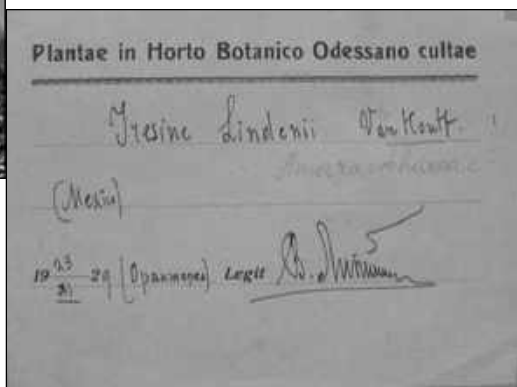 Plantae in Horto Botanico Odessano cultae
Iresine Lindenii Van Houtt.
(Mexico)
19 23 29 (Оранжерея) Legit